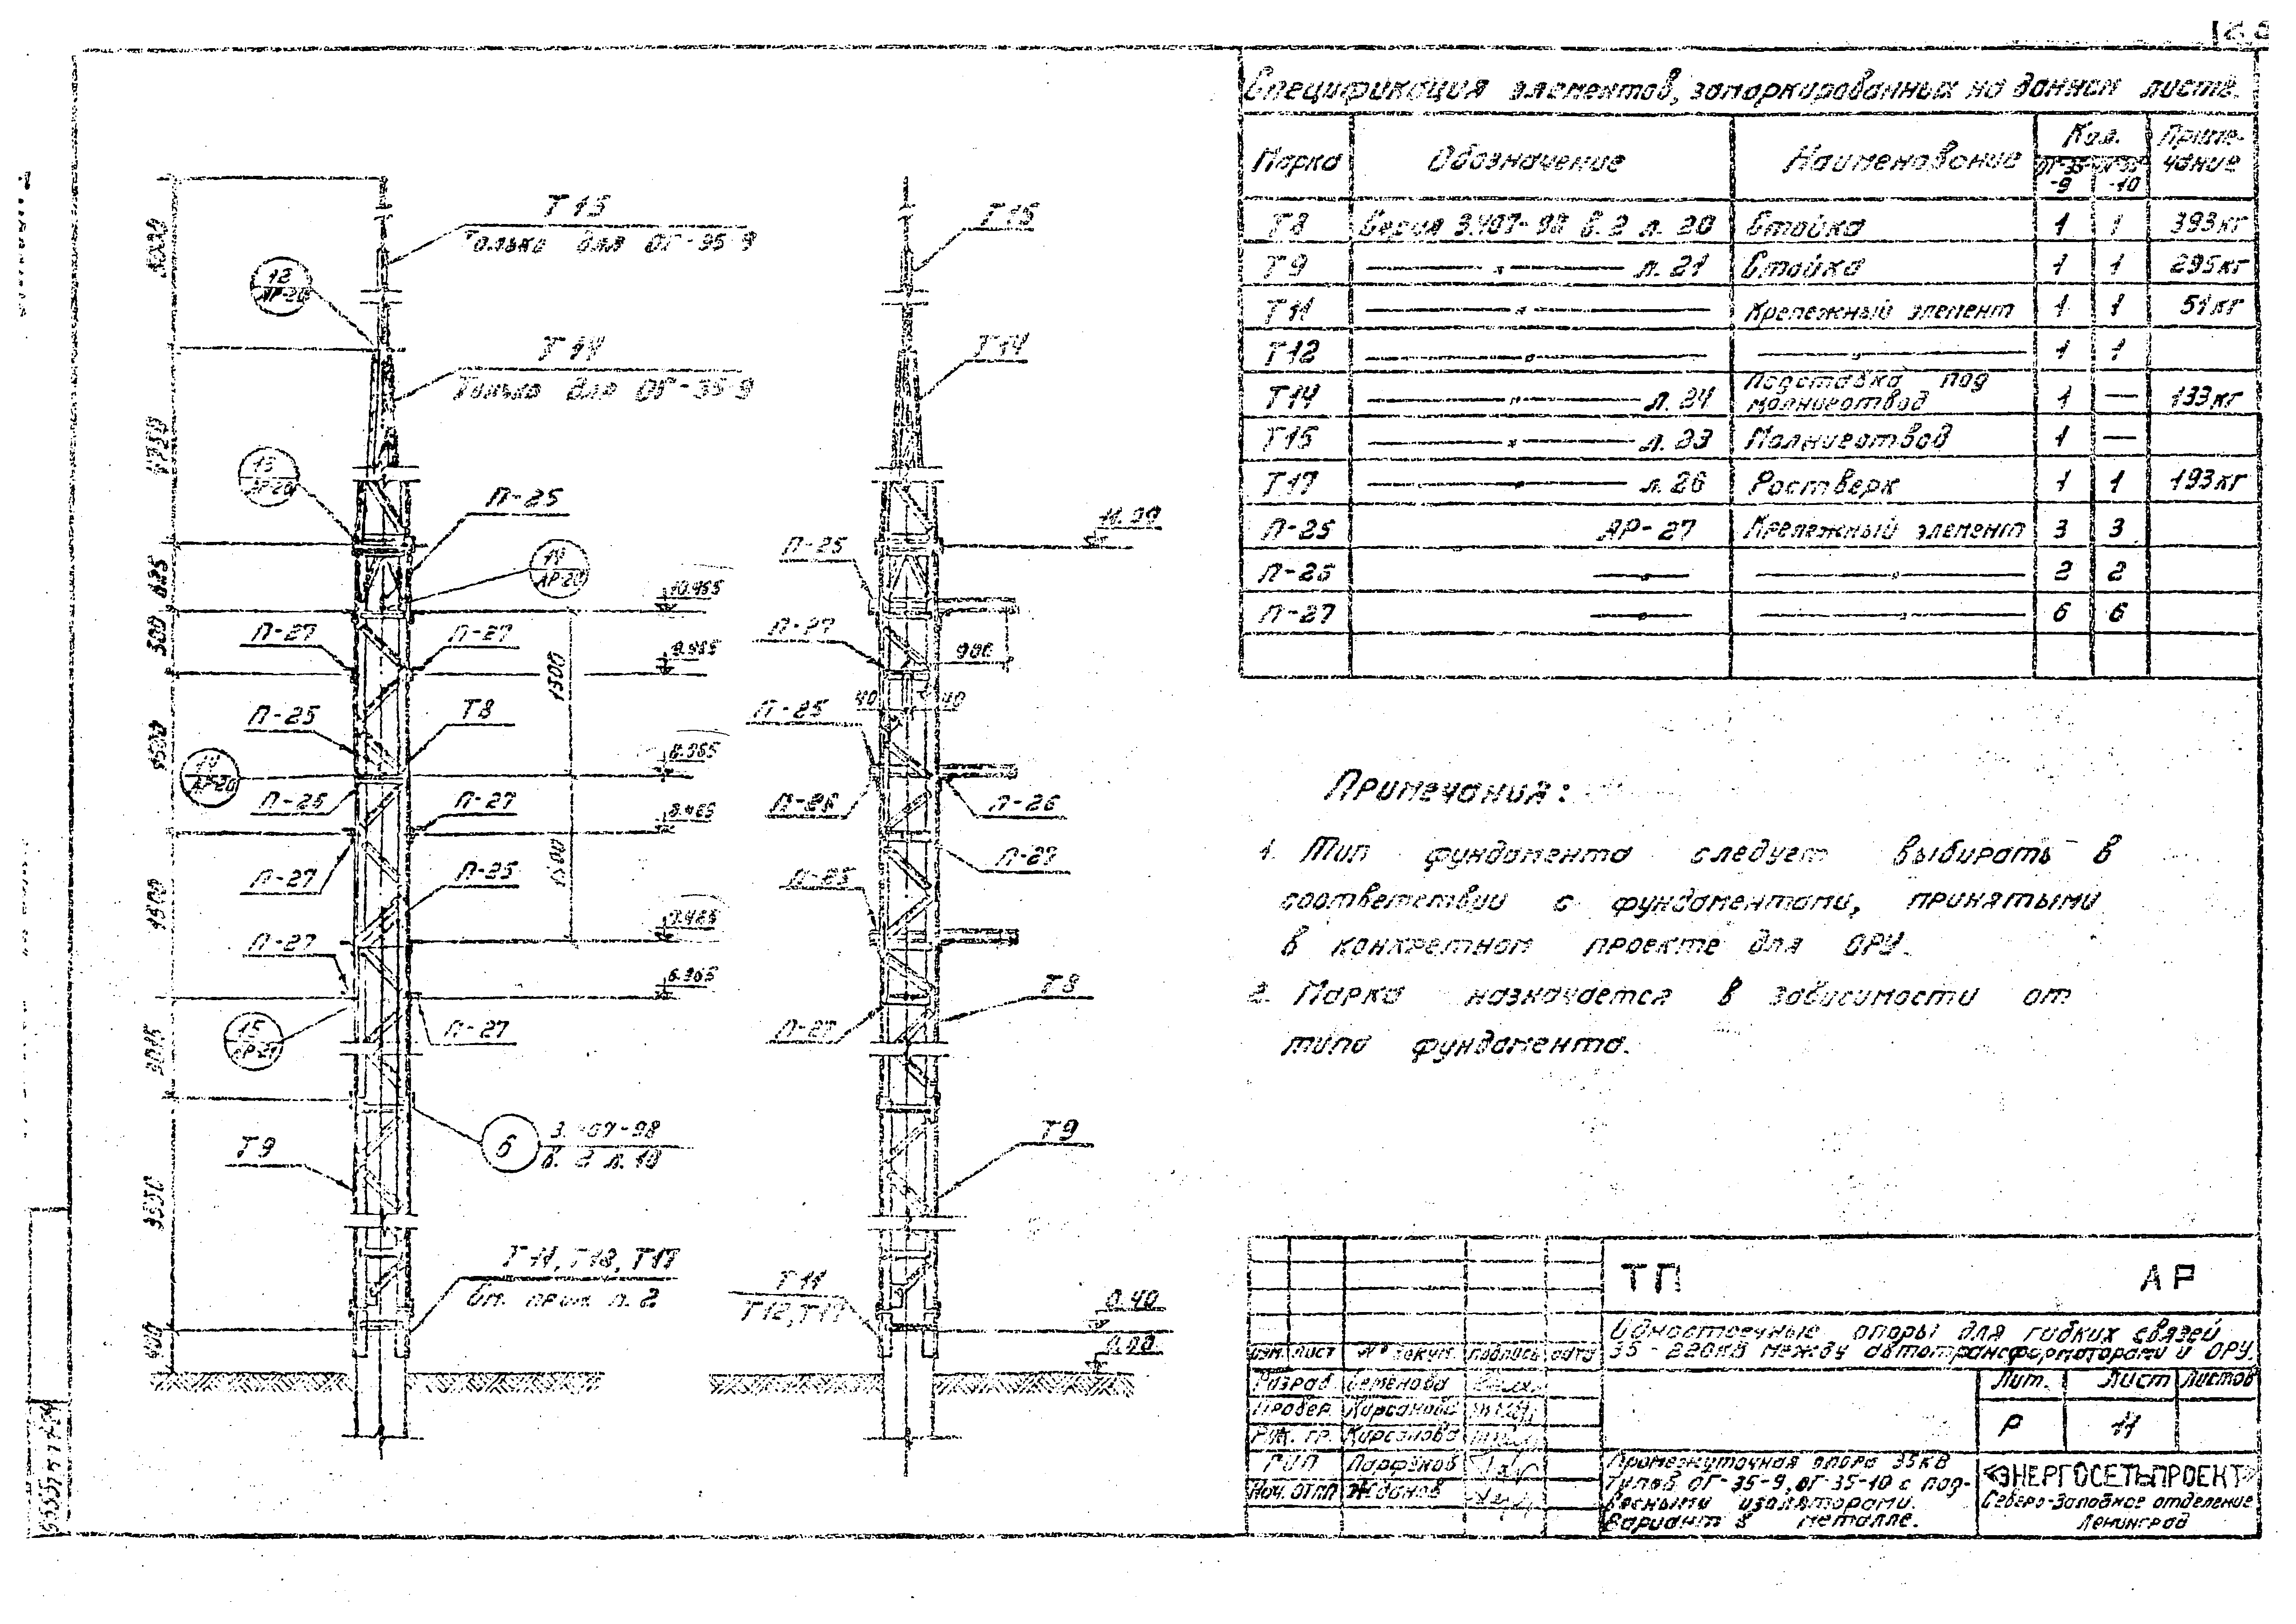 Спецификация элементов, замаркированных на данном листе.
Марка Обозначение Наименование Кол. Приме-чание
ОГ-35-9 ОГ-35-10
Т8 Серия 3.407-98 в.2 л. 20 Стойка 1 1 393кг
Т9 — " — л. 21 Стойка 1 1 295кг
Т11 — " — Крепежный элемент 1 1 51кг
Т12 — " — — " — 1 1
Т14 — " — л. 24 Подставка под молниеотвод 1 — 133кг
Т15 — " — л. 23 Молниеотвод 1 —
Т17 — " — л. 26 Ростверк 1 1 193кг
П-25 АР-27 Крепежный элемент 3 3
П-26 — " — — " — 2 2
П-27 — " — — " — 6 6
Т15
Только для ОГ-35-9
Т15
12
АР-20
Т14
Только для ОГ-35-9
Т14
4750
13
АР-20
П-25
11.00
П-25
14
АР-20
625
10.465
500
П-27
П-27
П-27
900
9.965
1500
П-25
Т8
40
40
П-25
1500
8.965
14
АР-20
П-26
П-27
П-26
П-26
8.465
П-27
1500
П-27
П-25
П-25
1500
7.465
П-27
6.965
Т8
15
АР-21
П-27
П-27
6
3.407-98
в. 2 л. 10
Т9
Т9
3550
Т11, Т12, Т17
См. прим. п. 2
Т11
Т12, Т17
0.40
400
0.00
Примечания:
1. Тип фундамента следует выбирать в
соответствии с фундаментами, принятыми
в конкретном проекте для ОРУ.
2. Марка назначается в зависимости от
типа фундамента.
ТП АР
Одностоечные опоры для гибких связей
35-220кВ между автотрансформаторами и ОРУ.
Изм. Лист № докум. Подпись Дата
Разраб Семенова
Провер. Кирсанова
Рук. гр. Кирсанова
ГИП Парфенов
Нач. ОТПП Жданов
Лит. Лист Листов
Р 11
Промежуточная опора 35кВ
Типов ОГ-35-9, ОГ-35-10 с под-
весными изоляторами.
Вариант в металле.
«ЭНЕРГОСЕТЬПРОЕКТ»
Северо-Западное отделение
Ленинград